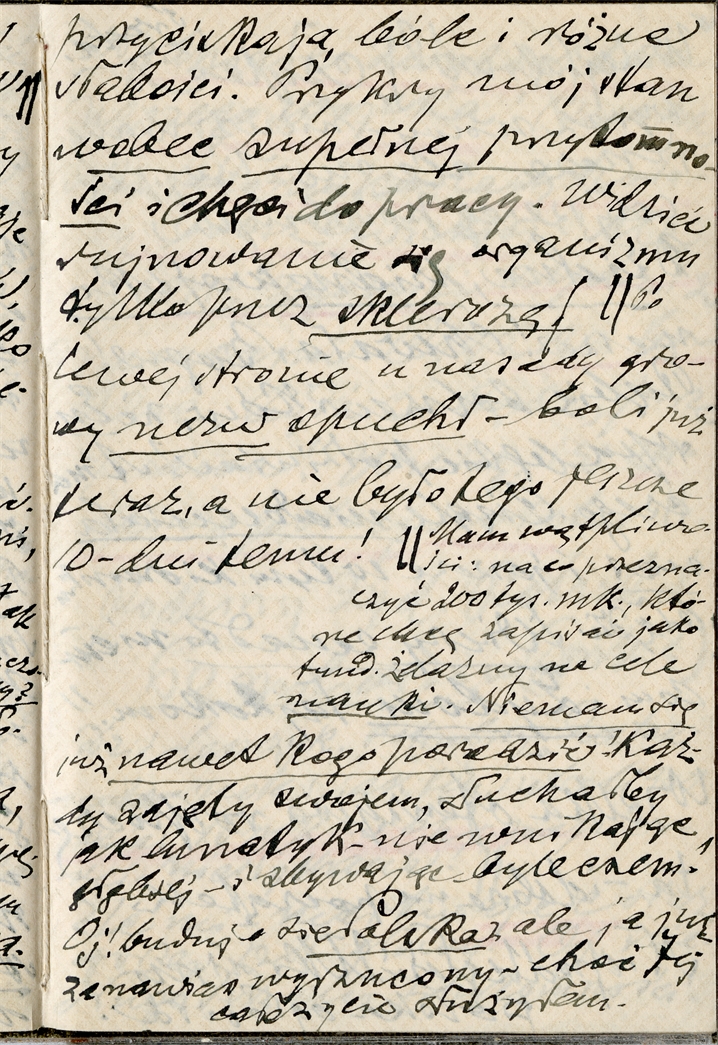 przyciskają, bóle i różne
słabości. Przykry mój stan
wobec zupełnej przytomno-
ści i chęci do pracy. Widzieć
rujnowanie się organizmu
tylko przez sklerozę! || Po
lewej stronie u nasady gło-
wy nerw spuchł – boli już
teraz, a nie było tego jeszcze
10-dni temu! || Mam wątpliwo-
ści: na co przezna-
czyć 200 tys. mk., któ-
re chcę zapisać jako
fund. żelazny na cele
nauki. Nie mam się
już nawet kogo poradzić! Każ-
dy zajęty swojem, słuchałby
jak lunatyk – nie wnikając
głębiej – i zbywając byle czem.
Oj! buduje się Polska, ale ja już
zanawias wyrzucony – choć jej
całe życie służyłem.